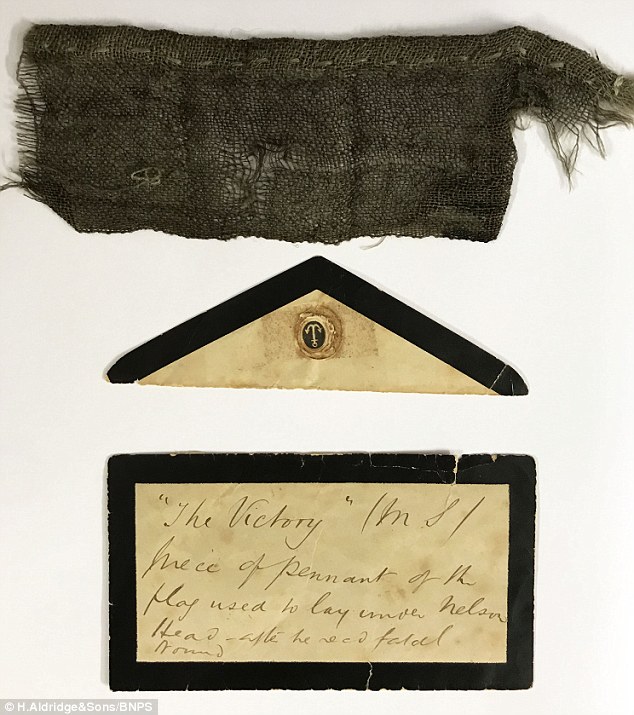 "The Victory" (M S)
piece of pennant of the
flag used to lay under Nelson
Head – after he recd fatal
wound
© H.Aldridge&Sons/BNPS